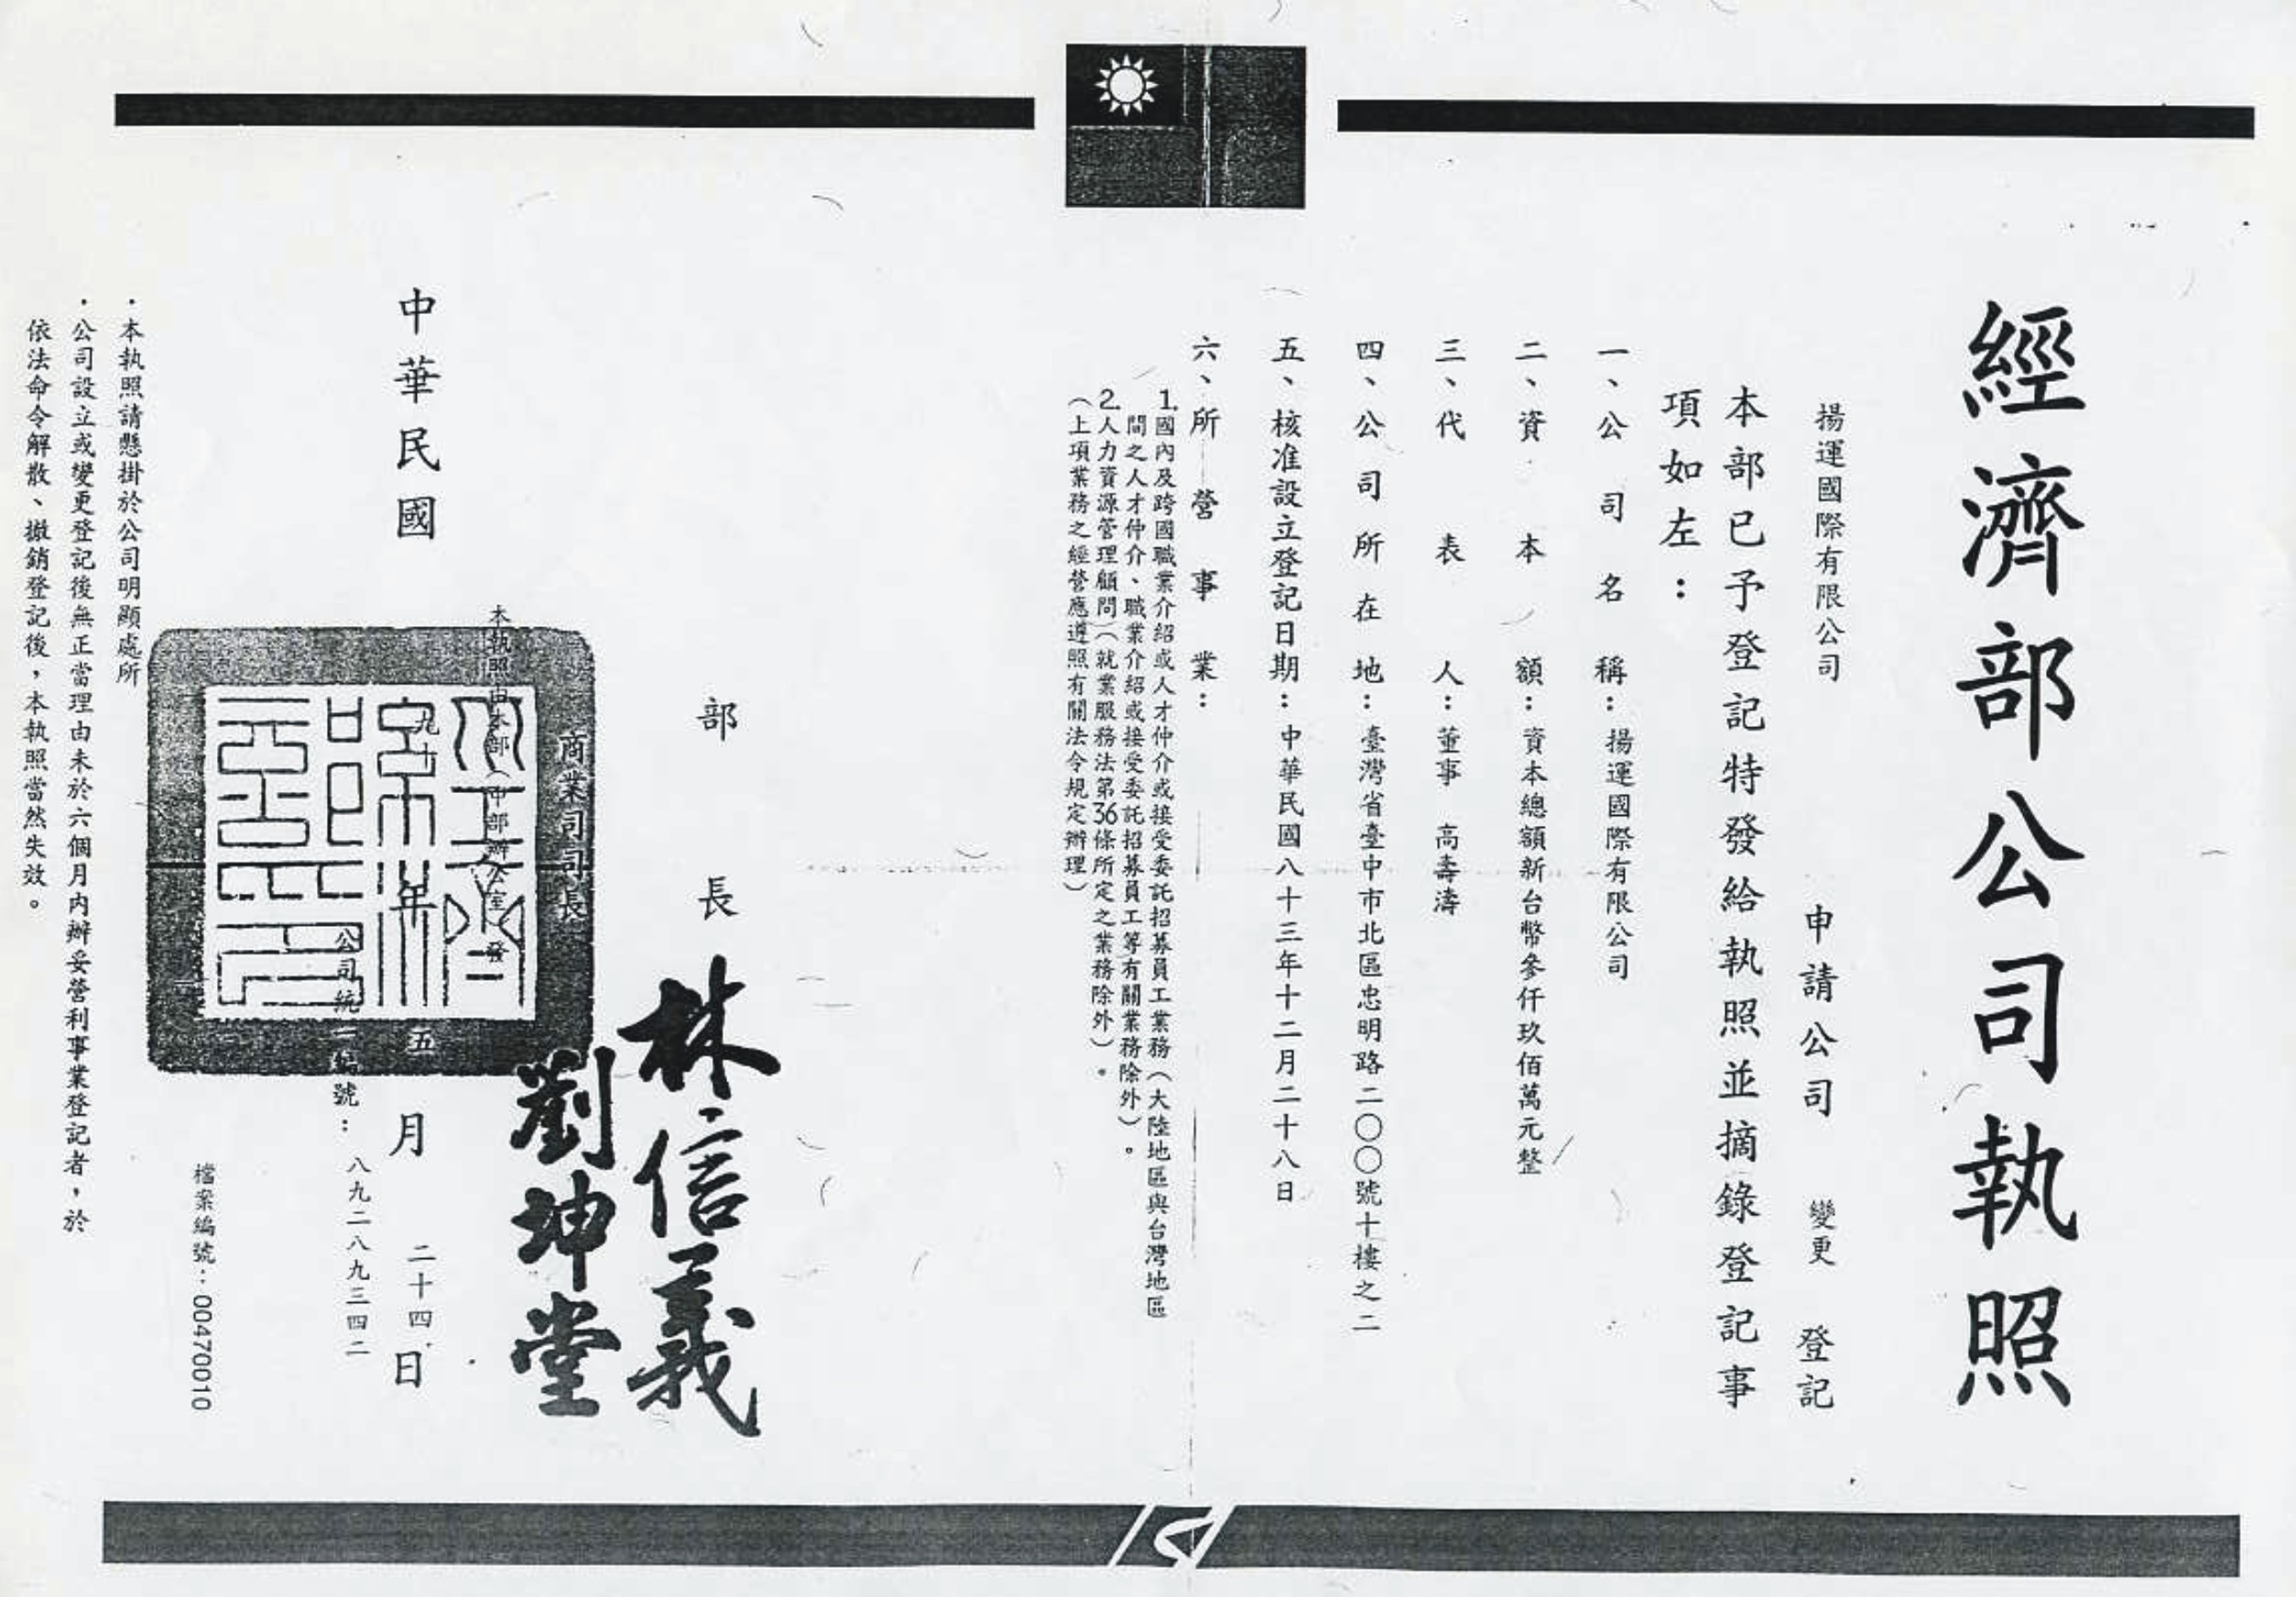 經濟部公司執照
揚運國際有限公司　申請公司　變更　登記
本部已予登記特發給執照並摘錄登記事
項如左：
一、公司名稱：揚運國際有限公司
二、資本額：資本總額新台幣參仟玖佰萬元整
三、代表人：董事　高壽濤
四、公司所在地：臺灣省臺中市北區忠明路二〇〇號十樓之二
五、核准設立登記日期：中華民國八十三年十二月二十八日
六、所營事業：
1.國內及跨國職業介紹或人才仲介或接受委託招募員工業務（大陸地區與台灣地區
間之人才仲介、職業介紹或接受委託招募員工等有關業務除外）。
2.人力資源管理顧問（就業服務法第36條所定之業務除外）。
（上項業務之經營應遵照有關法令規定辦理）
部長　林信義
商業司司長　劉坤堂
本執照由本部（中部辦公室）發
中華民國　九十　年　五　月　二十四　日
公司統一編號：八九二八九三四二
檔案編號：004700010
・本執照請懸掛於公司明顯處所
・公司設立或變更登記後無正當理由未於六個月內辦妥營利事業登記者，於
依法命令解散、撤銷登記後，本執照當然失效。